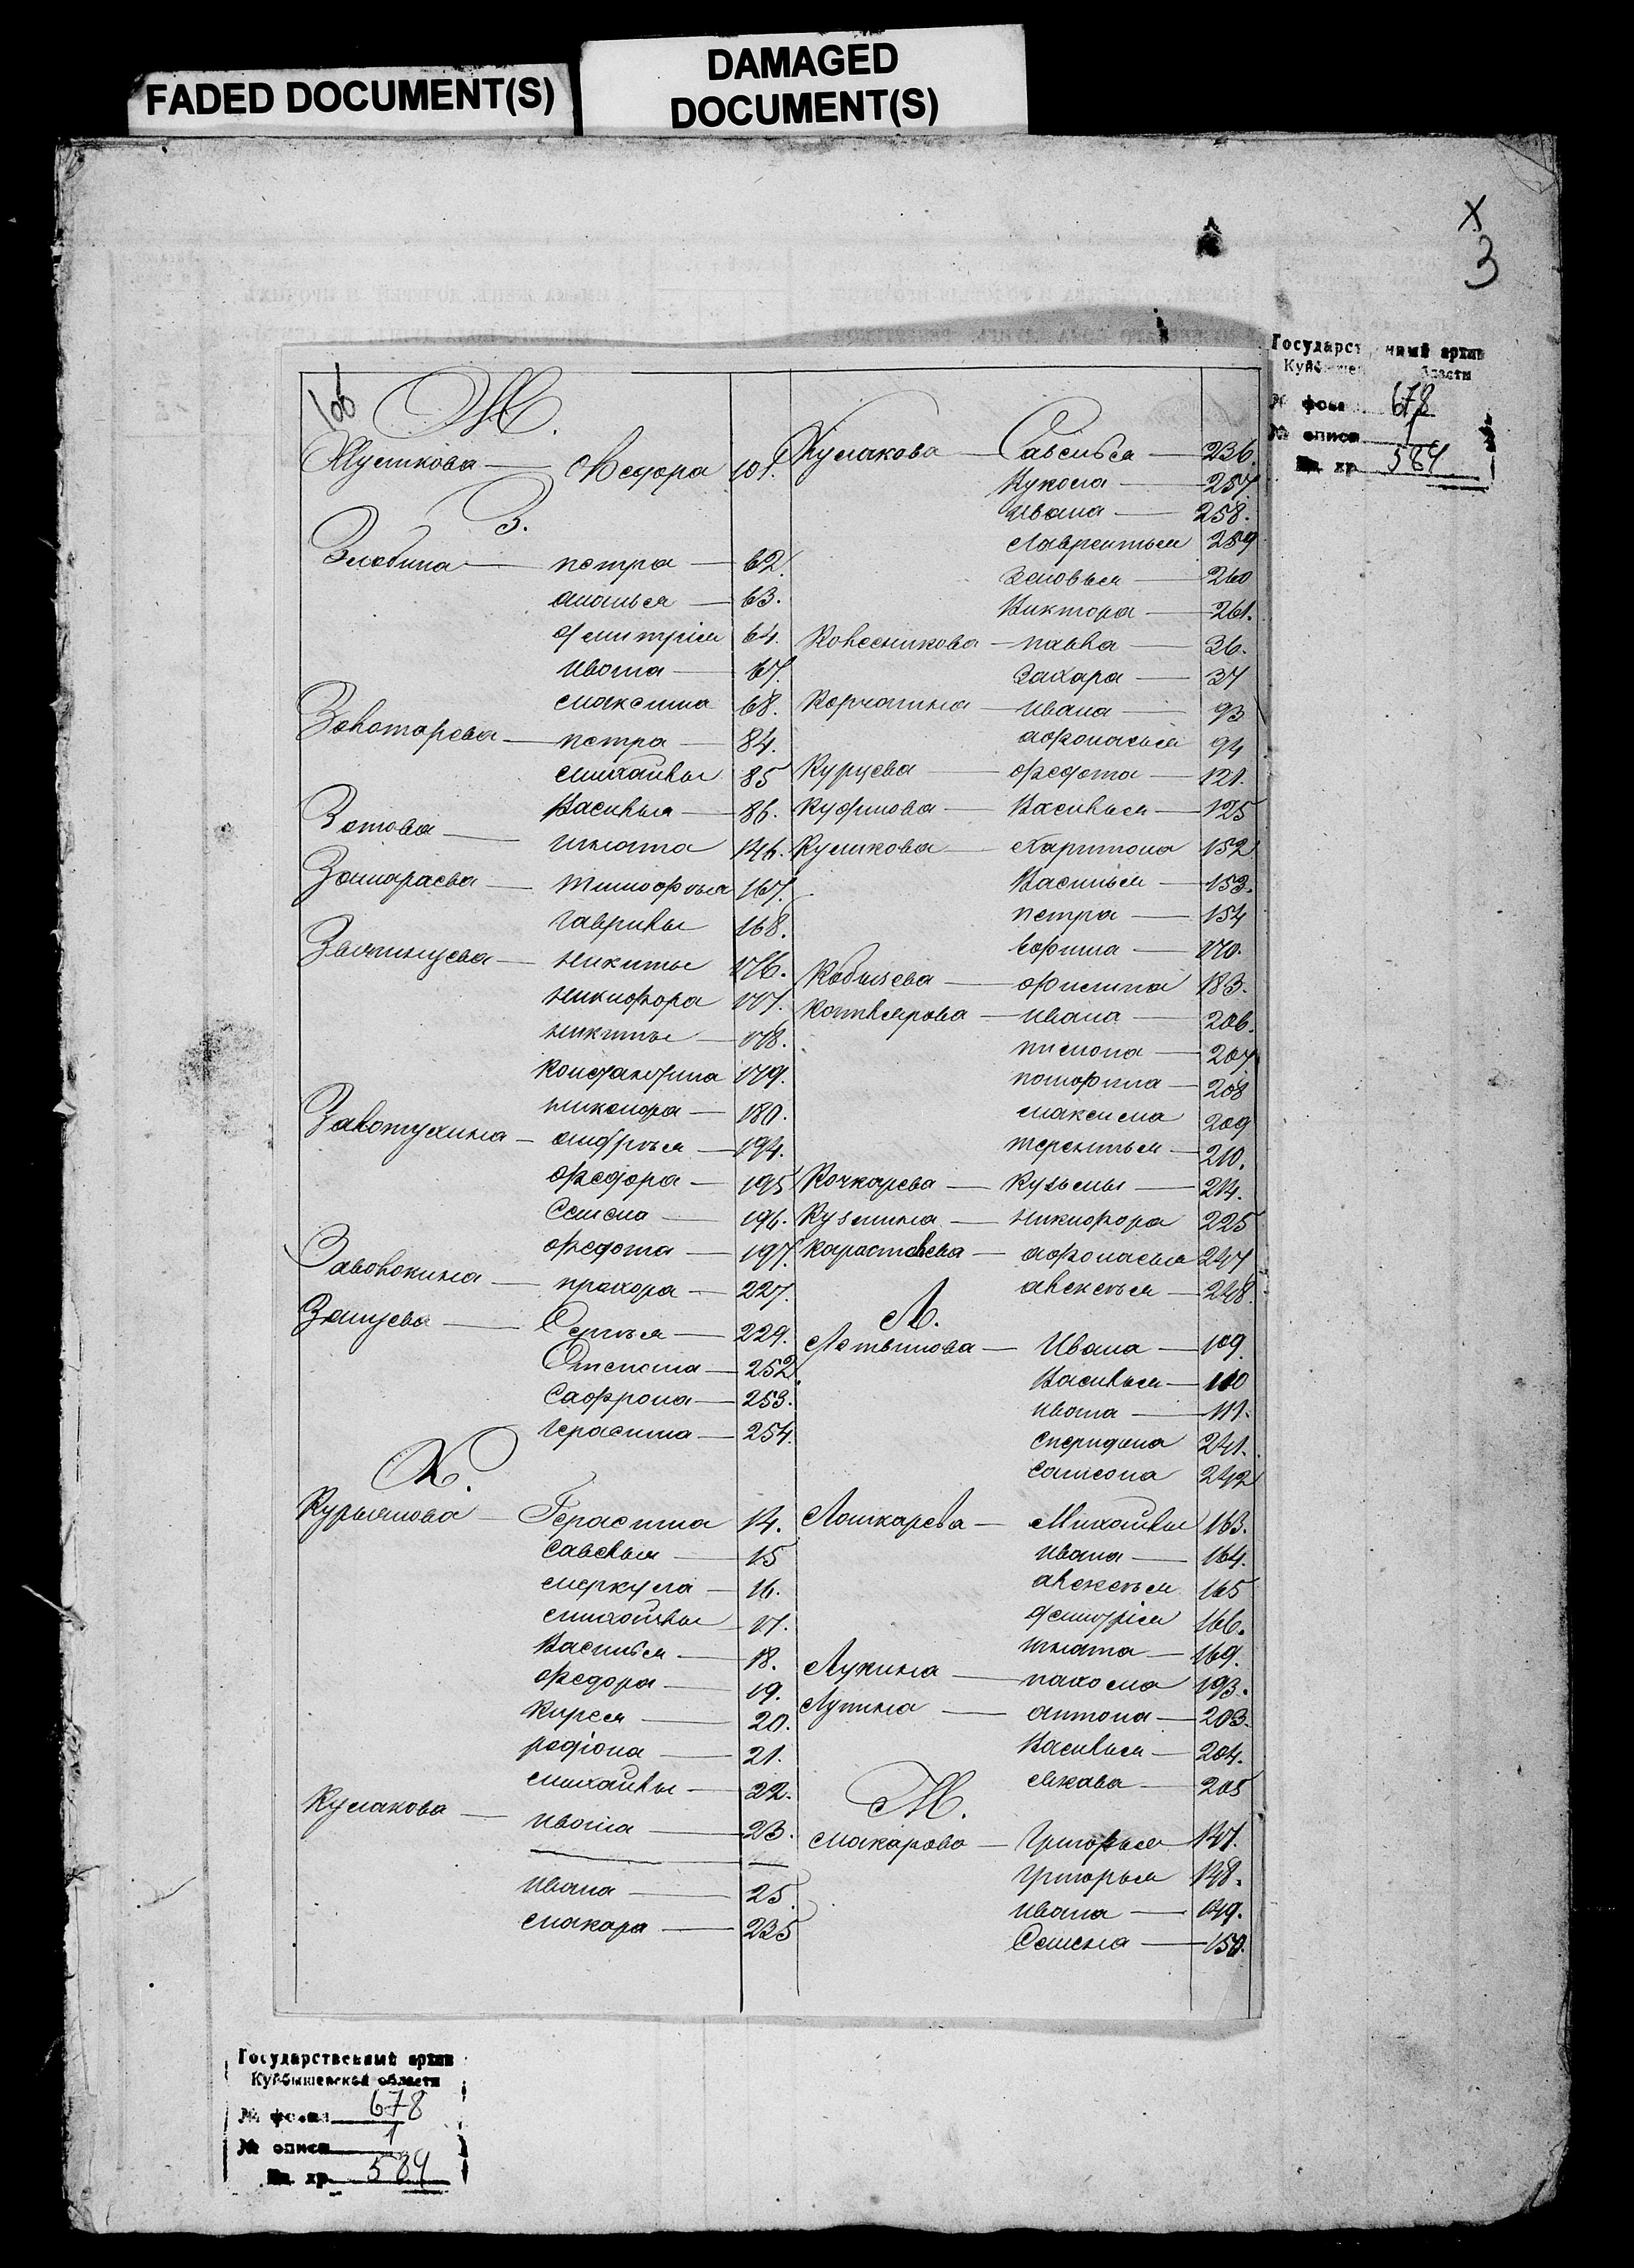 FADED DOCUMENT(S)
DAMAGED
DOCUMENT(S)
х
3
Государст нный архив
Куйб ше бласти
№ фон 678
№ описи 1
хр 584
Ж.
Жуликова — Федора 101.
З.
Злобина — петра — 62.
ананья — 63.
дмитрія 64.
ивана — 67.
максима 68.
Золотарева — петра — 84.
михайлы 85
Василья — 86.
Зотова — игната 146.
тимофья 167.
гаврилы 168.
никиты 176.
никифора 177.
никиты — 178.
Константина 179.
никонора — 180.
андрья — 194.
федора — 195
Семена — 196.
федота — 197.
Заволокина — прохора — 227.
Сергья — 229.
Степана — 252.
Сафрона — 253.
герасима — 254.
К.
Курьянова — Герасима 14.
савелья — 15
меркула — 16.
михайлы 17.
Василья — 18.
федора — 19.
Кирея — 20.
родіона — 21.
михайлы — 22.
Кулакова — ивана — 23.
ивана — 25.
макара — 235
Кулакова — Савелья — 236.
257
ивана — 258.
лаврентья 259
Зеновья — 260
Виктора — 261.
Колесникова — павла — 36.
Захара — 37
Корчагина — ивана — 93
афонасья 94
федота — 121.
Василья — 125
Куликова — Харитона 152
Василья — 153.
петра — 154
ефима — 170.
Кобызева — филипа 183.
Котлярова — ивана — 206.
пимона — 207
208
максима 209
терентья — 210.
Кочкарева — Кузьмы — 214.
Кузмина — никифора 225
афонасья 247
алексья — 248.
Л.
Ивана — 109
Василья — 110
ивана — 111.
спиридона 241.
самсона 242
Лошкарева — Михайлы 163.
ивана — 164.
алексья 165
дмитрія 166.
игната — 169.
Лукина — пахома 193.
антона — 203.
Василья — 204.
205
М.
макарова — Григорья 147.
григорья 148.
ивана — 149.
Семена — 150.
Государственный архив
Куйбышевской области
№ фонда 678
№ описи 1
хр. 584